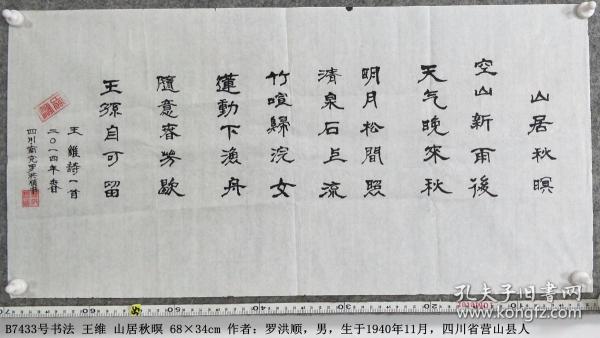 山居秋暝
空山新雨後
天气晚來秋
明月松間照
清泉石上流
竹喧歸浣女
蓮動下漁舟
隨意春芳歇
王孫自可留
王維詩一首
二〇一四年春
四川
孔夫子旧书网
kongfz.com
B7433号书法 王维 山居秋暝 68×34cm 作者：罗洪顺，男，生于1940年11月，四川省营山县人